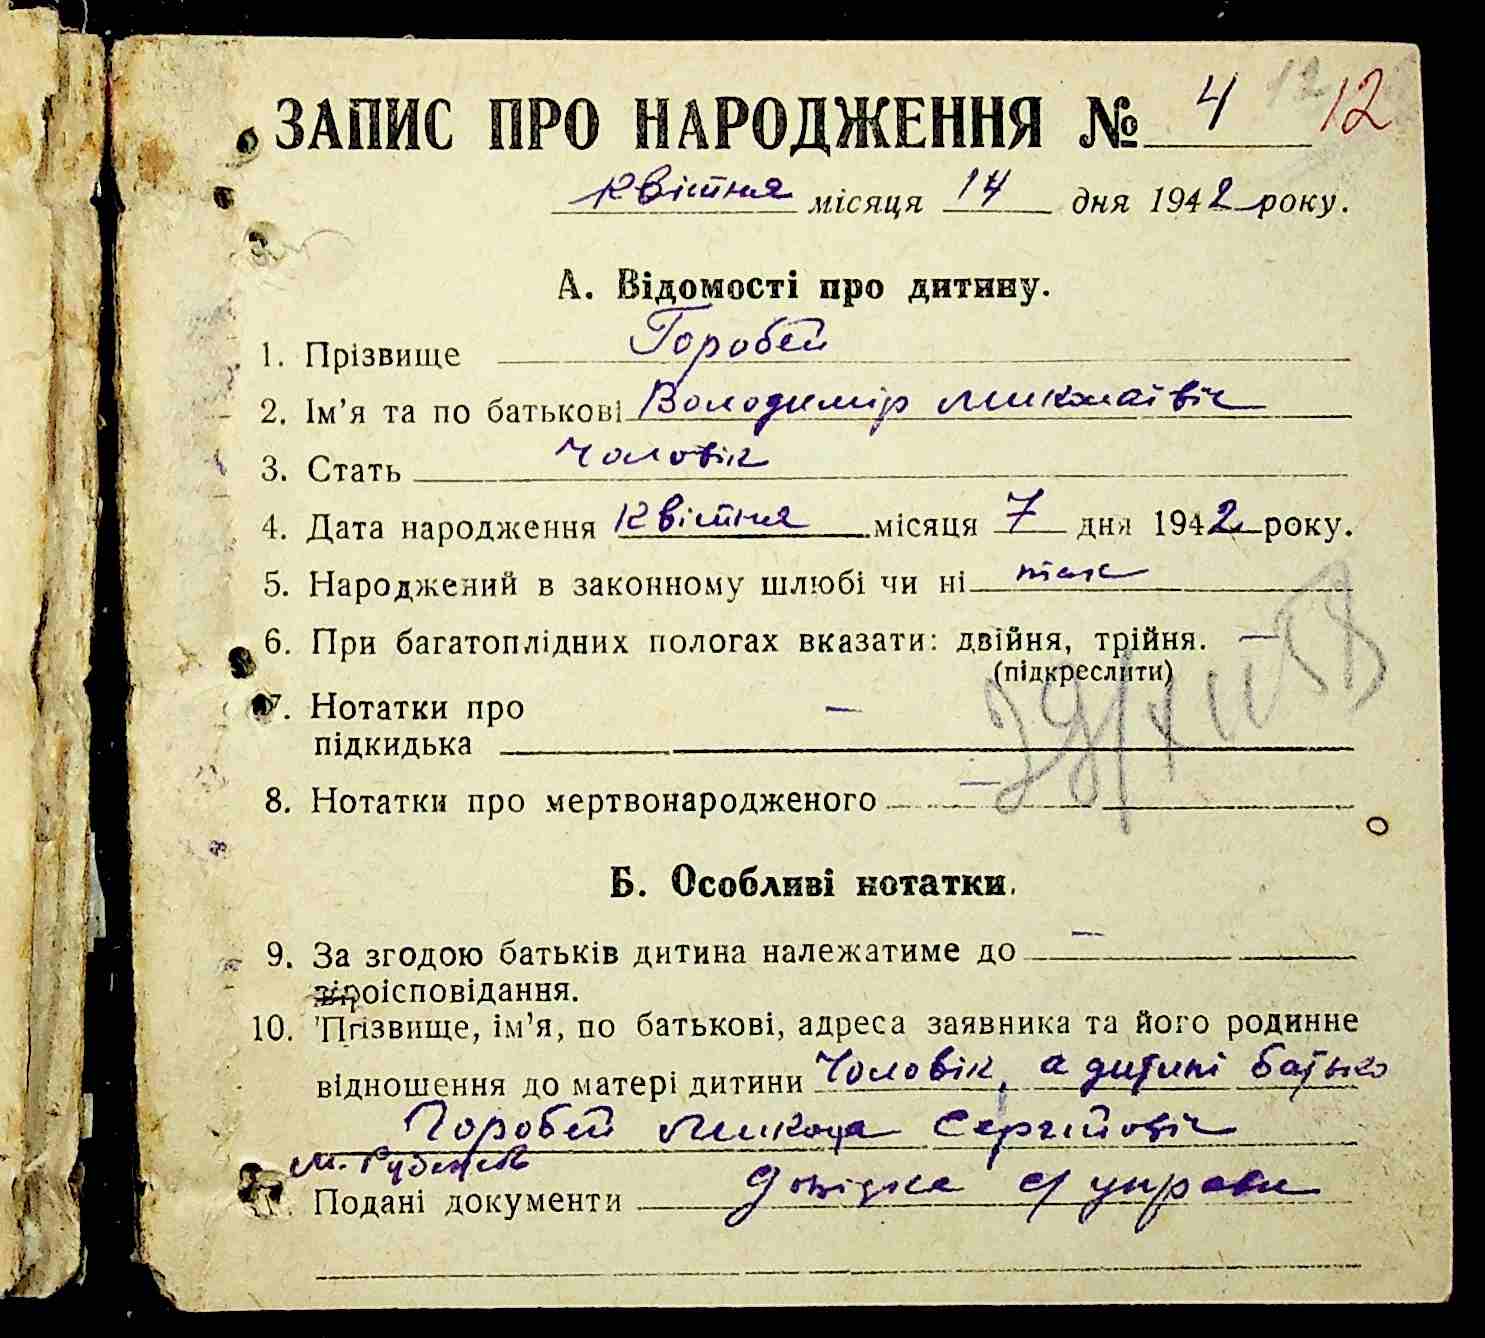 ЗАПИС ПРО НАРОДЖЕННЯ № 4 12 12
квітня місяця 14 дня 1942 року.
А. Відомості про дитину.
1. Прізвище Горобей
2. Ім'я та по батькові Володимір Миколаївіч
3. Стать Чоловік
4. Дата народження квітня місяця 7 дня 1942 року.
5. Народжений в законному шлюбі чи ні так
6. При багатоплідних пологах вказати: двійня, трійня. —
(підкреслити)
7. Нотатки про —
підкидька
8. Нотатки про мертвонародженого —
Б. Особливі нотатки.
9. За згодою батьків дитина належатиме до —
віроісповідання.
10. Прізвище, ім'я, по батькові, адреса заявника та його родинне
відношення до матері дитини Чоловік, а дитині батько
Горобей Микола Сергійовіч
м.
Подані документи Довідка с/управи